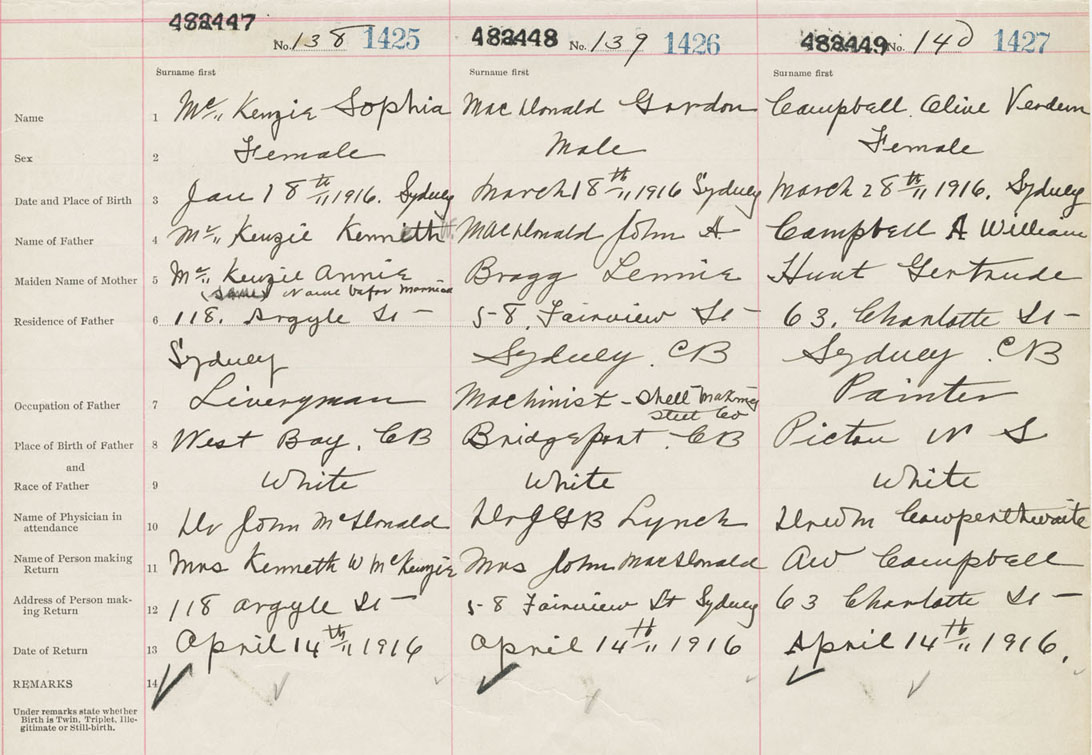 482447 No. 138 1425 482448 No. 139 1426 482449 No. 140 1427
Surname first Surname first Surname first
Name 1 Mc Kenzie Sophia MacDonald Gordon Campbell Olive Verdun
Sex 2 Female Male Female
Date and Place of Birth 3 Jan 18th 1916. Sydney March 18th 1916 Sydney March 28th 1916. Sydney
Name of Father 4 Mc Kenzie Kenneth MacDonald John A Campbell A William
Maiden Name of Mother 5 Mc Kenzie Annie Bragg Lennie Hunt Gertrude
(Same) Name befor Married
Residence of Father 6 118. Argyle St - 58. Fairview St - 63. Charlotte St -
Sydney Sydney. CB Sydney. CB
Occupation of Father 7 Liveryman Machinist - Shell Making Painter
Steel Co
Place of Birth of Father 8 West Bay. CB Bridgeport. CB Pictou N S
and
Race of Father 9 White White White
Name of Physician in
attendance 10 Dr John McDonald Dr JGB Lynch Dr Wm Cowperthwaite
Name of Person making
Return 11 Mrs Kenneth W McKenzie Mrs John MacDonald AW Campbell
Address of Person mak-
ing Return 12 118 argyle St - 58 Fairview St Sydney 63 Charlotte St -
Date of Return 13 April 14th 1916 April 14th 1916 April 14th 1916.
REMARKS 14
Under remarks state whether
Birth is Twin, Triplet, Ille-
gitimate or Still-birth.